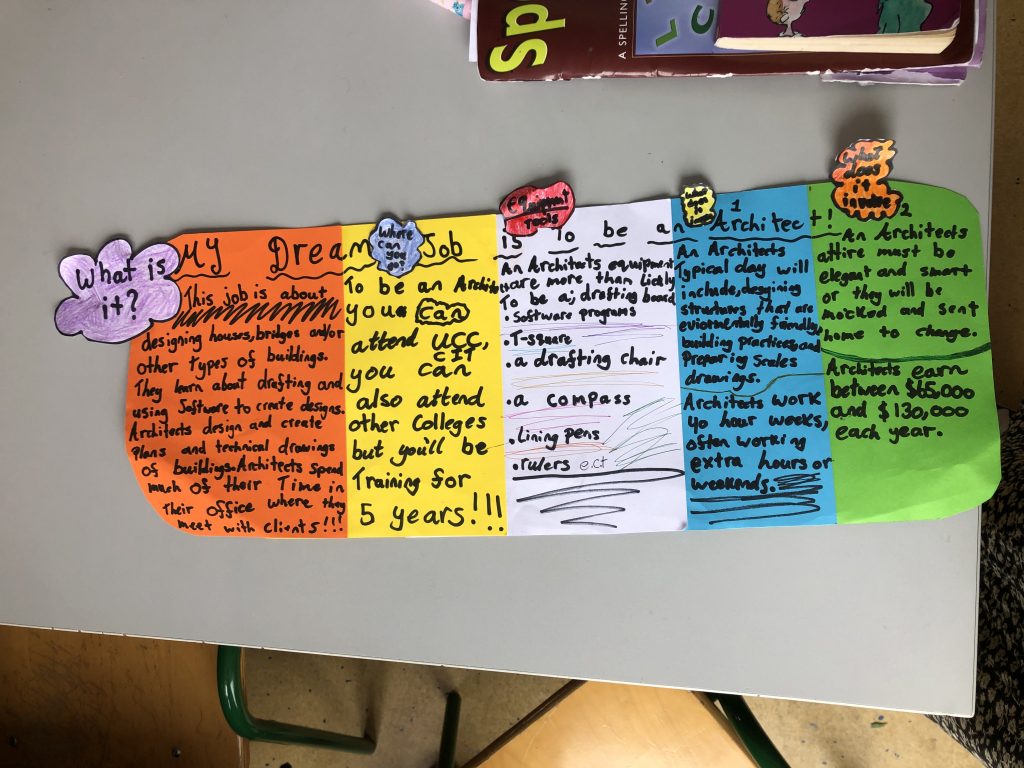 Sp
A SPELLING
What is
it?
My Dream Job is To be an Architect!
This job is about
designing houses, bridges and/or
other types of buildings.
They learn about drafting and
using Software to create designs.
Architects design and create
Plans and technical drawings
of buildings. Architects spend
much of their Time in
Their office where they
meet with clients!!!
Where
can
you
go?
To be an Archite
you can
attend UCC,
CIT
you can
also attend
other Colleges
but you'll be
Training for
5 years!!!
equipment
Tools
An Architects equipment
are more than likely
To be a; drafting board
• Software programs
• T-square
• a drafting chair
• a compass
• Lining pens
• rulers e.ct
1
An Architects
Typical day will
include, designing
structures that are
eviormentally friendly,
building practices, and
Preparing Scales
drawings.
Architects work
40 hour weeks,
often working
extra hours or
weekends.
What
does
it
involve
2
An Architects
attire must be
elegant and smart
or they will be
mocked and sent
home to change.
Architects earn
between $65,000
and $130,000
each year.